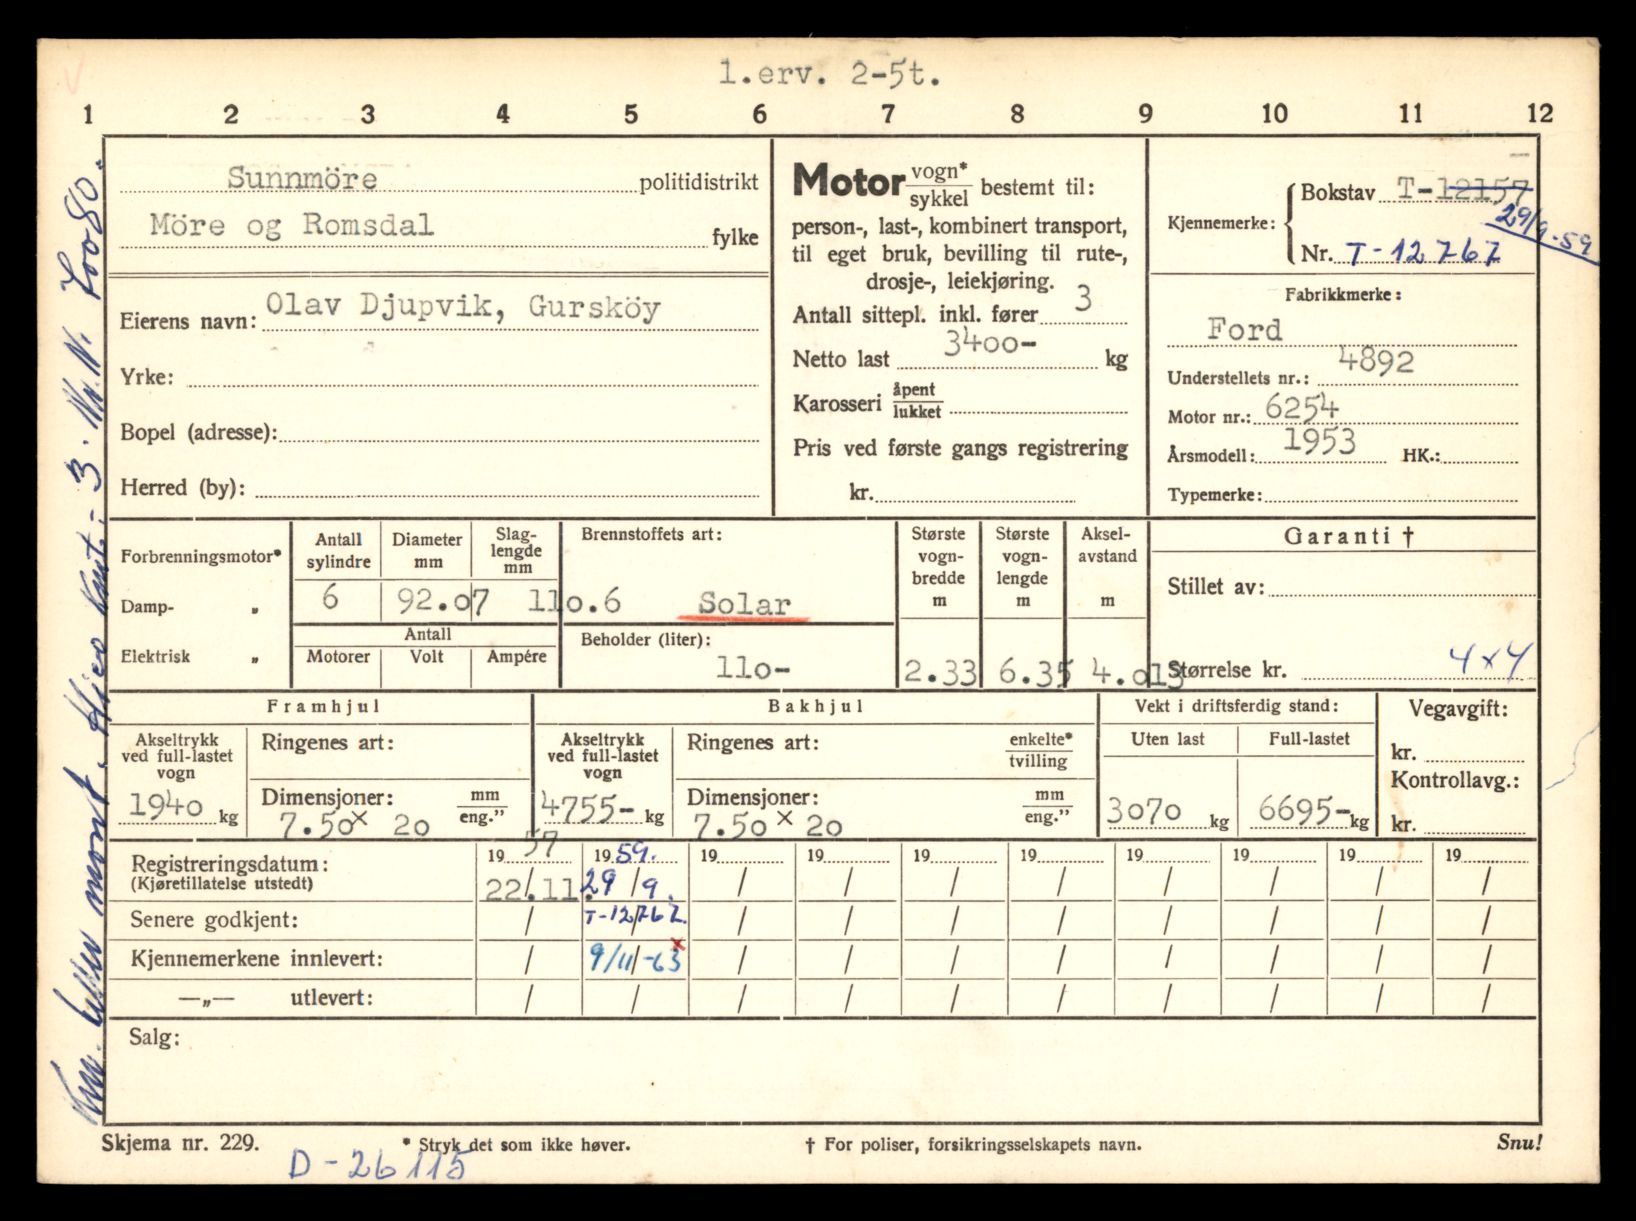 1.erv. 2-5t.
1 2 3 4 5 6 7 8 9 10 11 12
Sunnmöre politidistrikt
Möre og Romsdal fylke
Eierens navn: Olav Djupvik, Gursköy
Yrke:
Bopel (adresse):
Herred (by):
Motor vogn* sykkel bestemt til:
person-, last-, kombinert transport,
til eget bruk, bevilling til rute-,
drosje-, leiekjøring.
Antall sittepl. inkl. fører 3
Netto last 3400- kg
Karosseri åpent lukket
Pris ved første gangs registrering
kr.
Kjennemerke: Bokstav T-12157
29/9-59
Nr. T-12767
Fabrikkmerke:
Ford
Understellets nr.: 4892
Motor nr.: 6254
Årsmodell: 1953 HK.:
Typemerke:
Forbrenningsmotor*
Damp- „
Elektrisk „
Antall sylindre
6
Diameter mm
92.07
Slag-lengde mm
110.6
Antall
Motorer Volt Ampére
Brennstoffets art:
Solar
Beholder (liter):
110-
Største vogn-bredde m
2.33
Største vogn-lengde m
6.35
Aksel-avstand m
4.013
Garanti †
Stillet av:
4x4
Størrelse kr.
Framhjul
Akseltrykk ved full-lastet vogn
1940 kg
Ringenes art:
Dimensjoner: mm eng."
7.50 x 20
Bakhjul
Akseltrykk ved full-lastet vogn
4755- kg
Ringenes art: enkelte* tvilling
Dimensjoner: mm eng."
7.50 x 20
Vekt i driftsferdig stand:
Uten last Full-lastet
3070 kg 6695- kg
Vegavgift:
kr.
Kontrollavg.:
kr.
Registreringsdatum: 1957 1959. 19 19 19 19 19 19 19 19
(Kjøretillatelse utstedt) 22.11. 29/9. / / / / / / / /
Senere godkjent: / T-12767. / / / / / / / /
Kjennemerkene innlevert: / 9/11-63 x / / / / / / / /
—„— utlevert: / / / / / / / / / /
Salg:
Skjema nr. 229. * Stryk det som ikke høver. † For poliser, forsikringsselskapets navn. Snu!
D-26115
mont. Hiab 3.